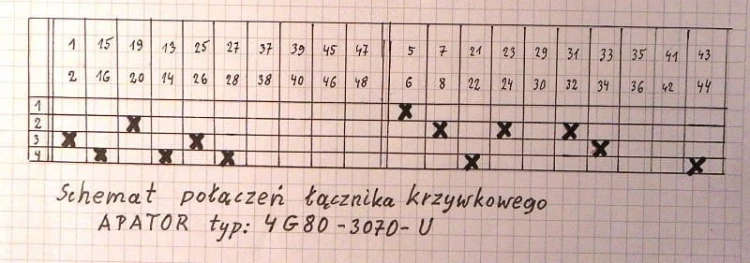 1 15 19 13 25 27 37 39 45 47 5 7 21 23 29 31 33 35 41 43
2 16 20 14 26 28 38 40 46 48 6 8 22 24 30 32 34 36 42 44
1 X
2 X X X X
3 X X X
4 X X X X X
Schemat połączeń łącznika krzywkowego
APATOR typ: 4G80-3070-U